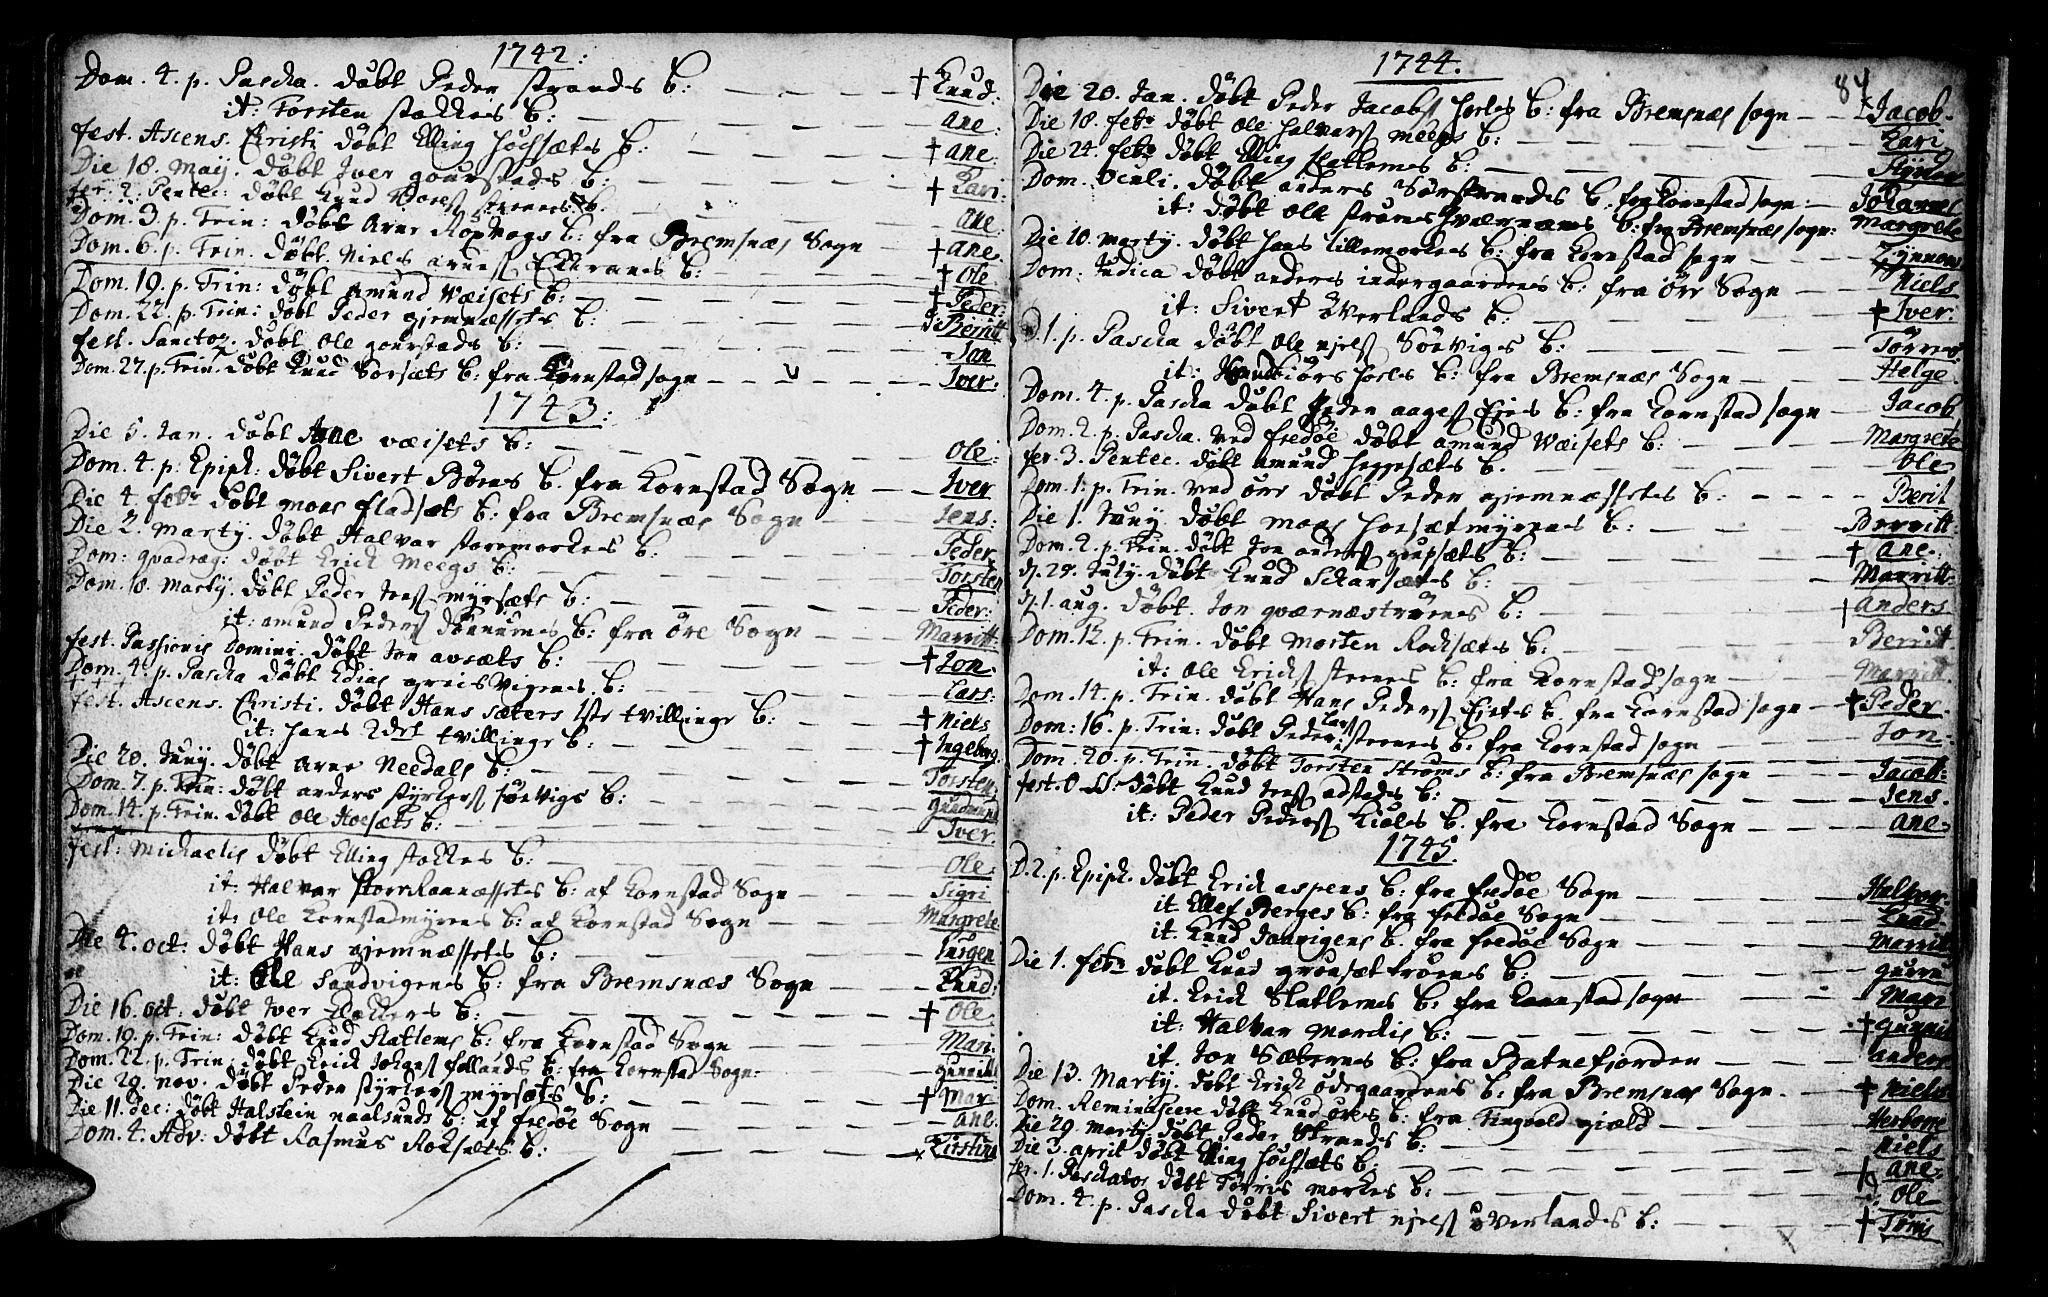 1742:
Dom. 4. p. Pascha. døbt Peder Strands b: — — — † Knud:
it: Torsten Stokkes b: — — — ane:
fest. Ascens. Christi døbt Elling Høchsæts b: — — — † ane:
Die 18. Maij. døbt Iver gourstads b: — — — † Kari:
fer. 2. Pentec: døbt Knud b. — — — ane:
Dom. 3. p. Trin: døbt Arne Røsvogs b: fra Bremsnæs Sogn — † ane
Dom. 6. p. Trin. døbt Niels b: — — — † Ole
Dom. 19. p. Trin: døbt Amund Wæisets b: — — — † Peder:
Dom. 22. p. Trin: døbt Peder gjemnæssets b: — — — Berrit
fest. Sanctor. døbt Ole gourstads b: — — — Jon
Dom. 27. p. Trin. døbt Knud Sørsæts b: fra Kornstad sogn — — — Iver:
1743:
Die 5. Jan. døbt Arne væisets b: — — — Ole:
Dom. 4. p. Epiph: døbt Sivert Børes b. fra Kornstad Sogn — — Iver
Die 4. febr døbt mons fladsæts b: fra Bremsnæs Sogn — — Jens:
Die 2. Martij. døbt Halvar storemorkens b: — — — Peder
Dom: qvadrag: døbt Erich Meegs b: — — — Torsten
Dom. 18. Martij. døbt Peder Jens myrsæts b: — — — Peder:
it: amund Peders b: fra øre Sogn — — Marritt:
fest. Passionis Domini. døbt Jon avsæts b: — — — † Jon
Dom. 4. p. Pascha døbt Elias b: — — — Lars:
fest. Ascens. Christi. døbt Hans sæters 1ste tvillinge b: — — † Niels
it: Hans 2det tvillinge b: — — — † Ingeborg
Die 20. Juny. døbt Arne Needals b: — — — Torsten
Dom. 7. p. Trin: døbt anders søevigs b: — — — gudmund
Dom. 14. p. Trin. døbt Ole Hoesæts b: — — — Iver
fest: Michaelis døbt Elling stokkes b: — — — Ole:
it: Halvar b: af Kornstad Sogn — — Sigri
it: Ole Kornstadmyrens b: af Kornstad Sogn — Margrete
Die 4. oct: døbt Hans gjemnæssets b: — — — Jørgen
it: Ole Sandvigens b: fra Bremsnæs Sogn — — Knud:
Die 16. oct: døbt Iver b: — — — † Ole
Dom. 19. p. Trin: døbt Knud Slatlems b: fra Kornstad Sogn — — — Mari
Dom. 22. p. Trin: døbt Erich follands b: fra Kornstad Sogn: — — —
Die 29. nov. døbt Peder myrsæts b: — — — † Mar:
Die 11. dec: døbt Halstein naalsunds b: af fredøe Sogn — — — ane:
Dom. 4. Adv: døbt Rasmus Roksets b: — — — Kirstina
1744.
84
Die 20. Jan. døbt Peder Jacobs b: fra Bremsnæs sogn — — Jacob
Die 18. febr døbt Ole Halvars meegs b: — — — Kari
Die 24. febr døbt Elling Slatlemes b: — — —
Dom. Oculi. døbt anders Sørstrandes b. fra Kornstad sogn: — Johannes
it: døbt Ole b: fra Bremsnæs sogn: Margrete
Die 10. Martij. døbt Hans Lillemorkens b: fra Kornstad sogn —
Dom: Judica døbt anders indergaardens b: fra øre Sogn — — Niels
it: Sivert øverlands b: — — — † Iver:
D. 1. p. Pascha døbt Ole njels Sørviges b: — — —
it: b: fra Bremsnæs Sogn — — Helge
Dom. 4. p. Pascha døbt Peder aages b: fra Kornstad sogn — Jacob
Dom. 2. p. Pascha. ved fredøe døbt amund Wæisets b: — — Margrete
fer. 3. Pentec. døbt amund heggesæts b. — — — Ole
Dom. 1. p. Trin. ved øre døbt Peder gjemnæssets b: — — — Berit
Die 1. Juny. døbt mons b: — — — Berritt
Dom. 2. p. Trin. døbt Jon anders b: — — — † ane.
d. 29. July. døbt Knud Skarsæts b: — — — Marritt
d. 1. aug. døbt. Jon b: — — — † anders
Dom. 12. p. Trin. døbt Morten Rocksæts b: — — — Berritt
it: Ole Erichs b: fra Kornstad sogn — — — Marritt
Dom. 14. p. Trin. døbt Hans Peders b. fra Kornstad sogn — † Peder
Dom: 16. p. Trin: døbt Peder b: fra Kornstad sogn — — Jon:
Dom. 20. p. Trin. døbt Torsten Strøms b: fra Bremsnæs sogn — — Jacob:
fest. O. SS. døbt Knud Jens adstads b: — — — Jens.
it: Peder Peders b. fra Kornstad Sogn — — — ane
1745.
D. 2. p. Epiph. døbt Erich aspens b: fra fredøe Sogn — — Halvor
it. Ellef Berges b: fra fredøe Sogn — — — Knud
it: Knud b. fra fredøe Sogn — — — Marritt
Die 1. febr døbt Knud b: — — — gurru
it. Erich Slatlemes b: fra Kornstad sogn — — — Mari
it: Halvar mordis b: — — — †
it. Jon Sæternes b: fra Batnefjorden — — — anders
Die 13. Martij. døbt Erich ødegaardens b: fra Bremsnæs Sogn. — † Niels
Dom. Reminiscere døbt Knud øres b: fra Tingvold gjæld — — Herborre
Die 29. martij døbt Peder Strandes b: — — — Niels
Die 3. april døbt Elling høchsæts b: — — — † ane:
fer. 1. Paschatos døbt Tørris morkes b: — — — Ole
Dom. 4. p. Pascha døbt Sivert njels øverlandes b: — — — † Tøris